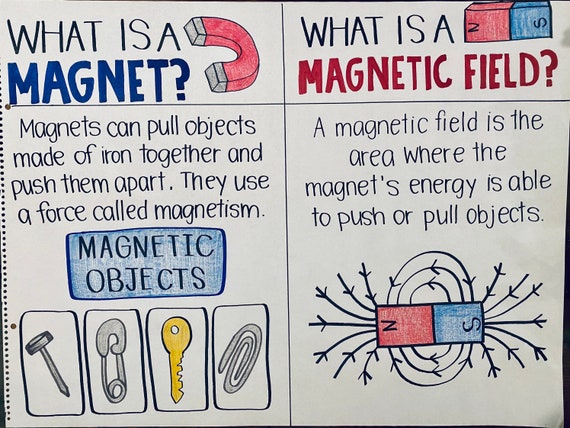 WHAT IS A
MAGNET?
Magnets can pull objects
made of iron together and
push them apart. They use
a force called magnetism.
MAGNETIC
OBJECTS
N S
WHAT IS A
MAGNETIC FIELD?
A magnetic field is the
area where the
magnet's energy is able
to push or pull objects.
N S